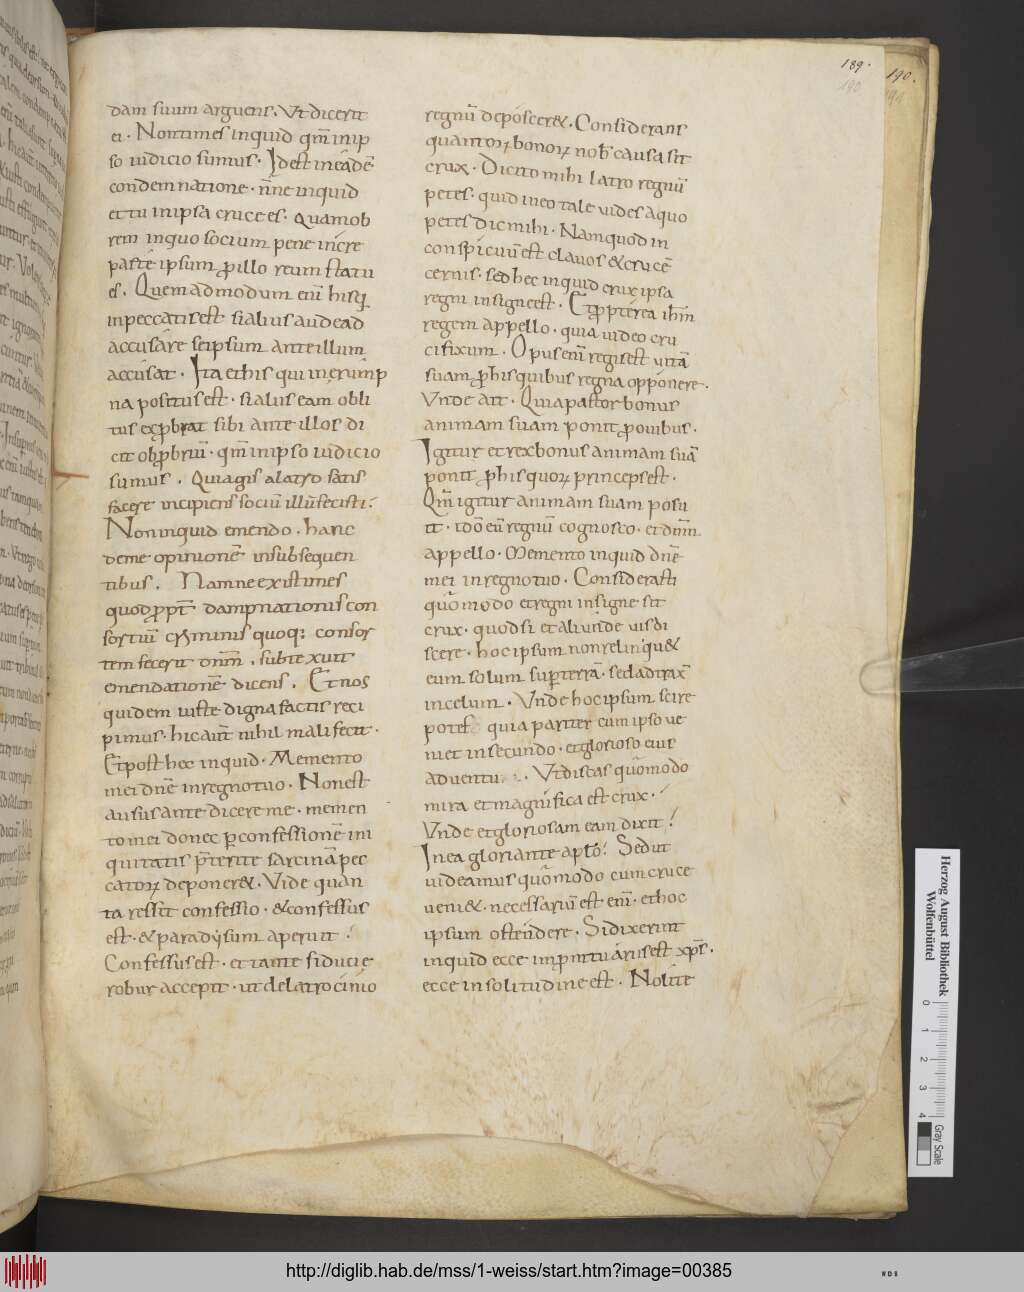 189.
190
190.
dam suum arguens. Ut dicerit
ei. Non times inquid qm̄ in ip
so iudicio sumus. Id est in eadē
condemnatione. nn̄e inquid
et tu in ipsa cruce es. quamob
rem in quo socium pene incre
paste ipsum pro illo reum statu
es. Quemadmodum enī his q
in peccatis est si alius audead
accusare seipsum ante illum
accusat. Ita et his qui in erump
na positus est. si alius eam obli
tus exprobrat sibi ante illos di
cit obprobriū. qm̄ in ipso iudicio
sumus. Quia gis a latro satis
facere incipiens sociū illū fecisti.
Non inquid emendo. hanc
deme opinionē in subsequen
tibus. Nam ne existimes
quod propt̄ dampnationis con
sortiū criminis quoq; consor
tem fecerit dn̄m. subtexuit
emendationē dicens. Et nos
quidem iuste digna factis reci
pimus. hic aut̄ nihil mali fecit.
Et post hec inquid. Memento
mei dn̄e in regno tuo. Non est
ausus ante dicere me. memen
to mei donec per confessionē ini
quitatis p̄terite sarcinā pec
catorum deponer&. Vide quan
ta res sit confessio. &confessus
est. &paradysum aperuit.
Confessus est. et tante fiducie
robur accepit. ut de latrocinio
regnū deposcer&. Considerans
quantorum bonorum nob̄ causa sit
crux. Dicito mihi latro regnū
petes. quid in eo tale uides a quo
petes dic mihi. Namquod in
conspicuū est clauos &crucē
cernis. sed hec inquid crux ipsa
regni insigne est. Et propterea ihm̄
regem appello. quia uideo cru
cifixum. Opus enī regis est uitā
suam pro his quibus regna opponere.
Vnde ait. Quia pastor bonus
animam suam ponit pro ouibus.
Igitur et rex bonus animam suā
ponit pro his quorum princeps est.
Qm̄ igitur animam suam posu
it. idō eū regnū cognosco. et dnm̄
appello. Memento inquid dnē
mei in regno tuo. Considerasti
quōmodo et regni insigne sit
crux. quod si et aliunde uis di
scere. hoc ipsum non relinqu&
eum solum sup terrā. sed adtrax̄
in celum. Vnde hoc ipsum scire
potes quia pariter cum ipso ue
niet in secundo. et glorioso eius
aduentu. Vt discas quōmodo
mira et magnifica est crux.
Vnde et gloriosam eam dixit.
In ea gloriante aplō. Sed ut
uideamus quōmodo cum cruce
ueni&. necessariū est enī. et hoc
ipsum ostendere. Si dixerint
inquid ecce in promtuarus est xp̄s.
ecce in solitudine est. Nolite
Herzog August Bibliothek
Wolfenbüttel
0 1 2 3 4
Gray Scale
http://diglib.hab.de/mss/1-weiss/start.htm?image=00385